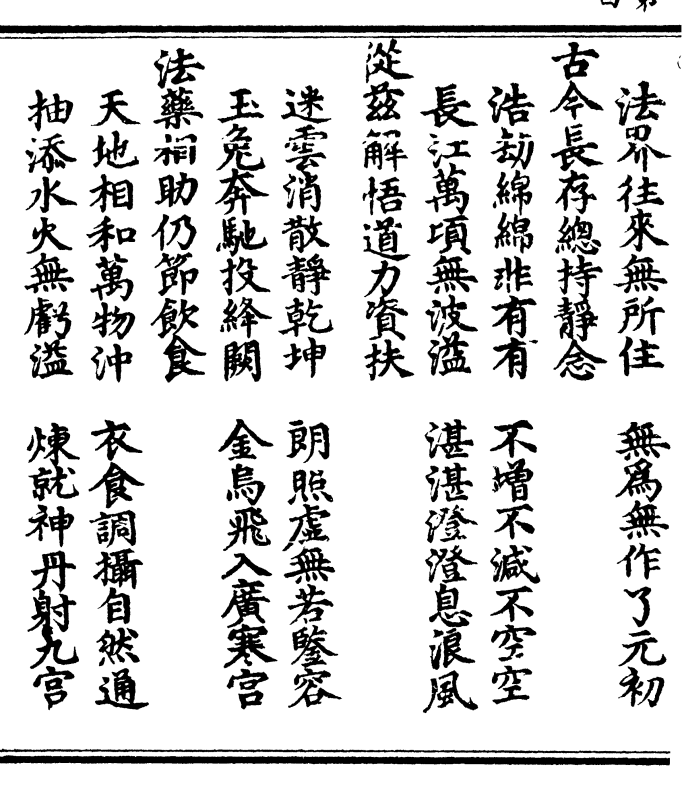 法界往來無所住　無爲無作了元初
古今長存總持靜念
浩劫綿綿非有有　不增不減不空空
長江萬頃無波溢　湛湛澄澄息浪風
從茲解悟道力資扶
迷雲消散靜乾坤　朗照虛無若鑒容
玉兔奔馳投絳闕　金烏飛入廣寒宮
法藥相助仍節飲食
天地相和萬物沖　衣食調攝自然通
抽添水火無虧溢　煉就神丹射九宮